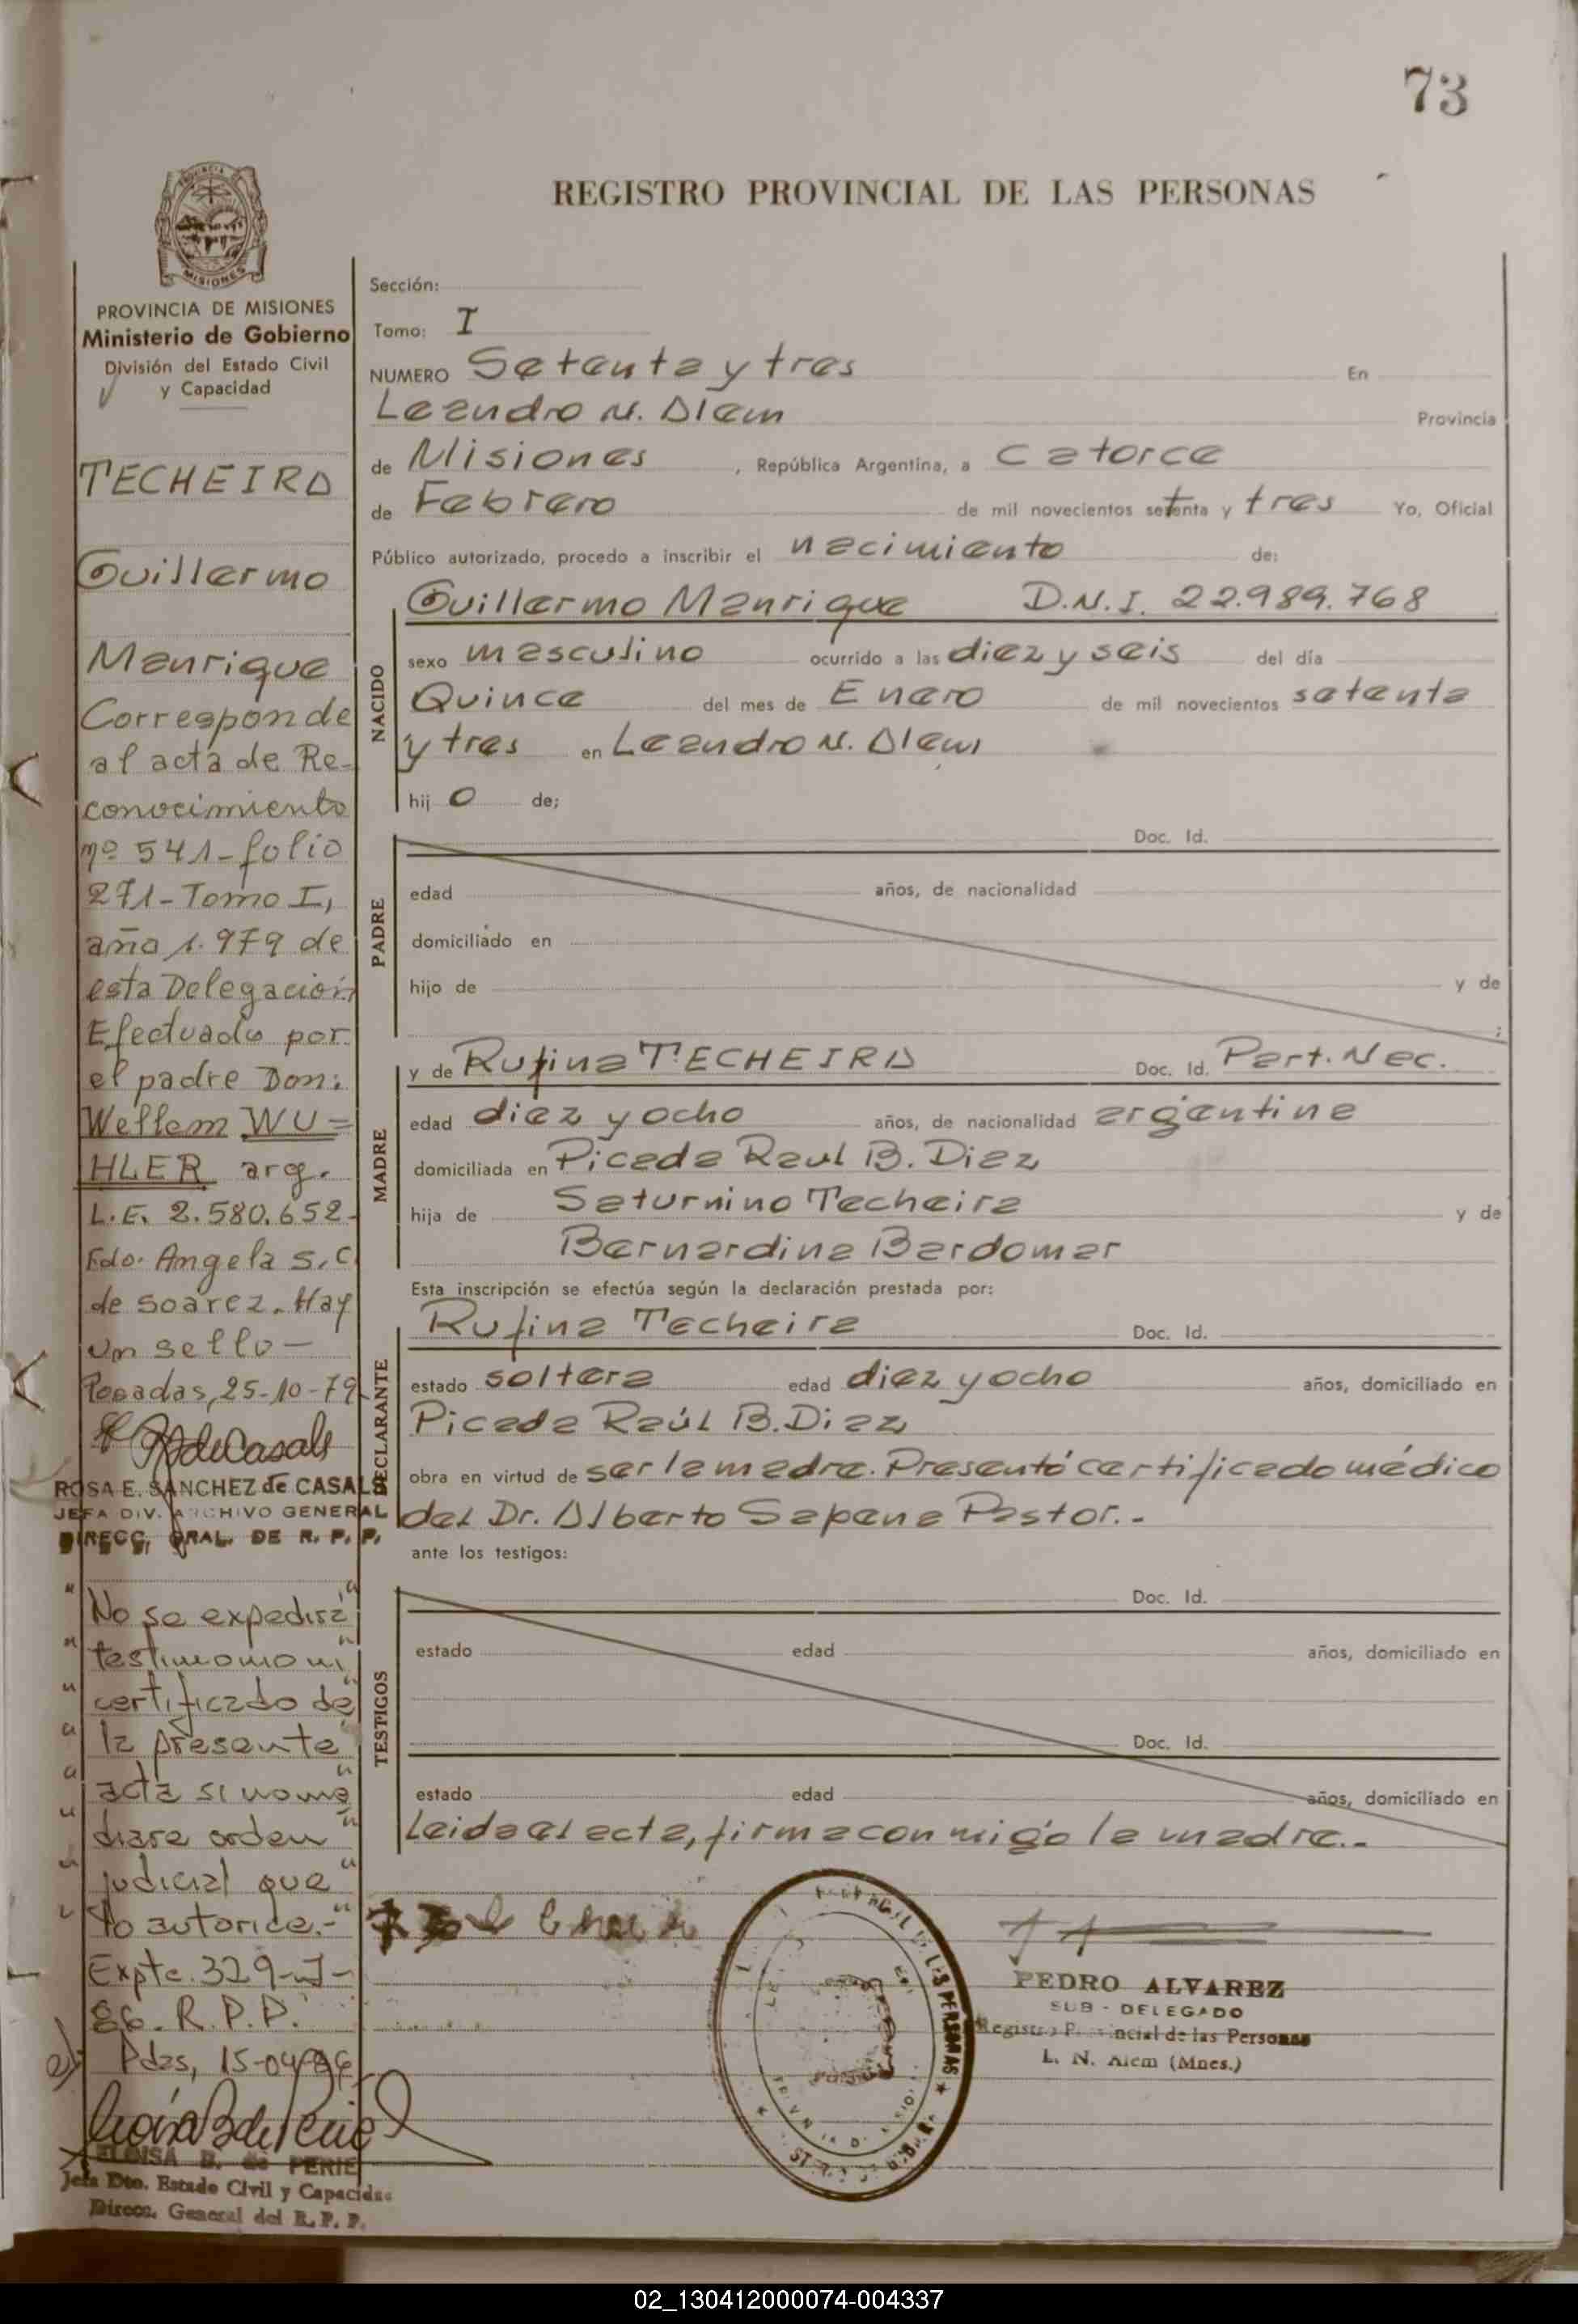 73
REGISTRO PROVINCIAL DE LAS PERSONAS
MISIONES
PROVINCIA DE MISIONES
Ministerio de Gobierno
División del Estado Civil
y Capacidad
TECHEIRA
Guillermo
Manrique
Corresponde
al acta de Re-
conocimiento
nº 541-folio
271-Tomo I,
año 1.979 de
esta Delegación
Efectuado por
el padre Don:
Wellem WU=
HLER arg.
L.E. 2.580.652-
Fdo. Angela S.C.
de Soarez. Hay
un sello-
Posadas, 25-10-79
ROSA E. SANCHEZ de CASALS
JEFA DIV. ARCHIVO GENERAL
DIRECC. GRAL. DE R. P. P.
No se expedirá
testimonio ni
certificado de
la presente
acta si no me
diare orden
judicial que
lo autorice.-
Expte. 329-J-
86. R.P.P.
Pdas, 15-04-86
ELOISA B. de PERIE
Jefa Dto. Estado Civil y Capacidad
Direcc. General del R. P. P.
Sección:
Tomo: I
NUMERO Setenta y tres En
Leandro N. Alem Provincia
de Misiones, República Argentina, a Catorce
de Febrero de mil novecientos setenta y tres Yo, Oficial
Público autorizado, procedo a inscribir el nacimiento de:
NACIDO
Guillermo Manrique D.N.I. 22.989.768
sexo masculino ocurrido a las diez y seis del día
Quince del mes de Enero de mil novecientos setenta
y tres en Leandro N. Alem
hij o de;
PADRE
Doc. Id.
edad años, de nacionalidad
domiciliado en
hijo de y de
;
MADRE
y de Rufina TECHEIRA Doc. Id. Part. Nac.
edad diez y ocho años, de nacionalidad argentina
domiciliada en Picada Raul B. Diaz
hija de Saturnino Techeira y de
Bernardina Bardomar
Esta inscripción se efectúa según la declaración prestada por:
DECLARANTE
Rufina Techeira Doc. Id.
estado soltera edad diez y ocho años, domiciliado en
Picada Raúl B. Diaz
obra en virtud de ser la madre. Presentó certificado médico
del Dr. Alberto Sapena Pastor.-
ante los testigos:
TESTIGOS
Doc. Id.
estado edad años, domiciliado en
Doc. Id.
estado edad años, domiciliado en
Leida el acta, firma conmigo la madre.-
PEDRO ALVAREZ
SUB - DELEGADO
Registro Provincial de las Personas
L. N. Alem (Mnes.)
02_130412000074-004337